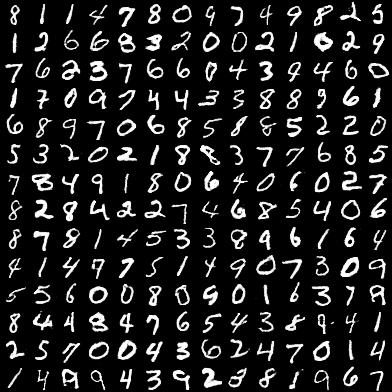 8 1 1 4 7 8 0 9 7 4 9 8 2 5
1 2 6 6 8 3 2 0 0 2 1 0 2 9
7 6 2 3 7 6 6 0 4 3 9 4 6 0
1 7 0 9 7 4 4 3 3 8 8 9 6 1
6 8 9 7 0 6 8 5 8 8 5 2 2 0
5 3 2 0 2 1 8 8 3 7 7 6 8 5
7 8 4 9 1 8 0 6 4 0 6 0 2 7
8 2 8 4 2 2 7 4 6 8 5 4 0 6
8 7 8 1 4 5 3 3 8 9 6 1 6 4
4 1 4 9 7 5 1 4 9 0 7 3 0 9
5 5 6 0 0 8 0 9 0 1 6 3 7 8
8 4 4 8 4 7 6 5 4 3 8 9 4 1
2 5 7 0 0 4 3 6 2 4 7 0 1 4
1 4 9 9 4 3 9 2 8 8 1 9 6 7